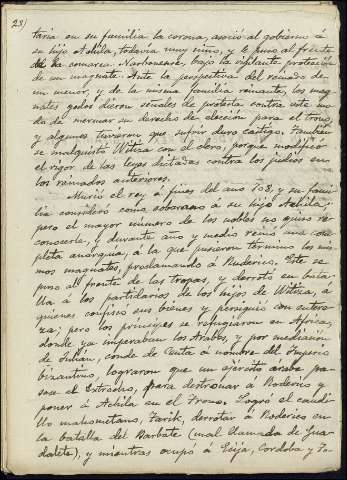 23)
taria en su familia la corona, asoció al gobierno á
su hijo Achila, todavía muy niño, y le puso al frente
de la comarca Narbonense, bajo la vigilante protección
de un magnate. Ante la perspectiva del reinado de
un menor, y de la misma familia reinante, los mag-
nates godos dieron señales de protesta contra este mo-
do de mermar su derecho de elección para el trono,
y algunos tuvieron que sufrir duro castigo. También
se malquistó Witiza con el clero, porque modificó
el rigor de las leyes dictadas contra los judíos en
los reinados anteriores.
Murió el rey á fines del año 708, y su fami-
lia consideró como soberano á su hijo Achila;
pero el mayor número de los nobles no quiso re-
conocerle, y durante año y medio reinó una com-
pleta anarquía, á la que pusieron término los mis-
mos magnates, proclamando á Ruderico. Este se
puso al frente de las tropas, y derrotó en bata-
lla á los partidarios de los hijos de Witiza, á
quienes confiscó sus bienes y persiguió con entere-
za; pero los príncipes se refugiaron en Africa,
donde ya imperaban los Arabes, y por mediación
de Julián, conde de Ceuta á nombre del Imperio
bizantino, lograron que un ejército arabe pa-
sase el Estrecho, para destronar á Roderico y
poner á Achila en el Trono. Logró el caudi-
llo mahometano, Tarik, derrotar á Roderico en
la batalla del Barbate (mal llamada de Gua-
dalete), y mientras ocupó á Ecija, Cordoba y To-